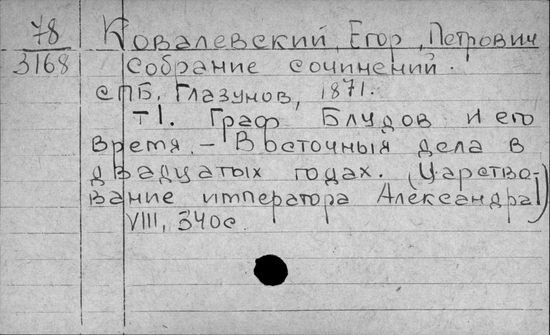 78 Ковалевский, Егор, Петрович
3168 собрание сочинений.
СПБ, Глазунов, 1871.
–Т1. Граф Блудов и его
время. – Восточныя дела в
двадцатых годах. (Царство-
вание императора Александра I)
VIII, 340с.